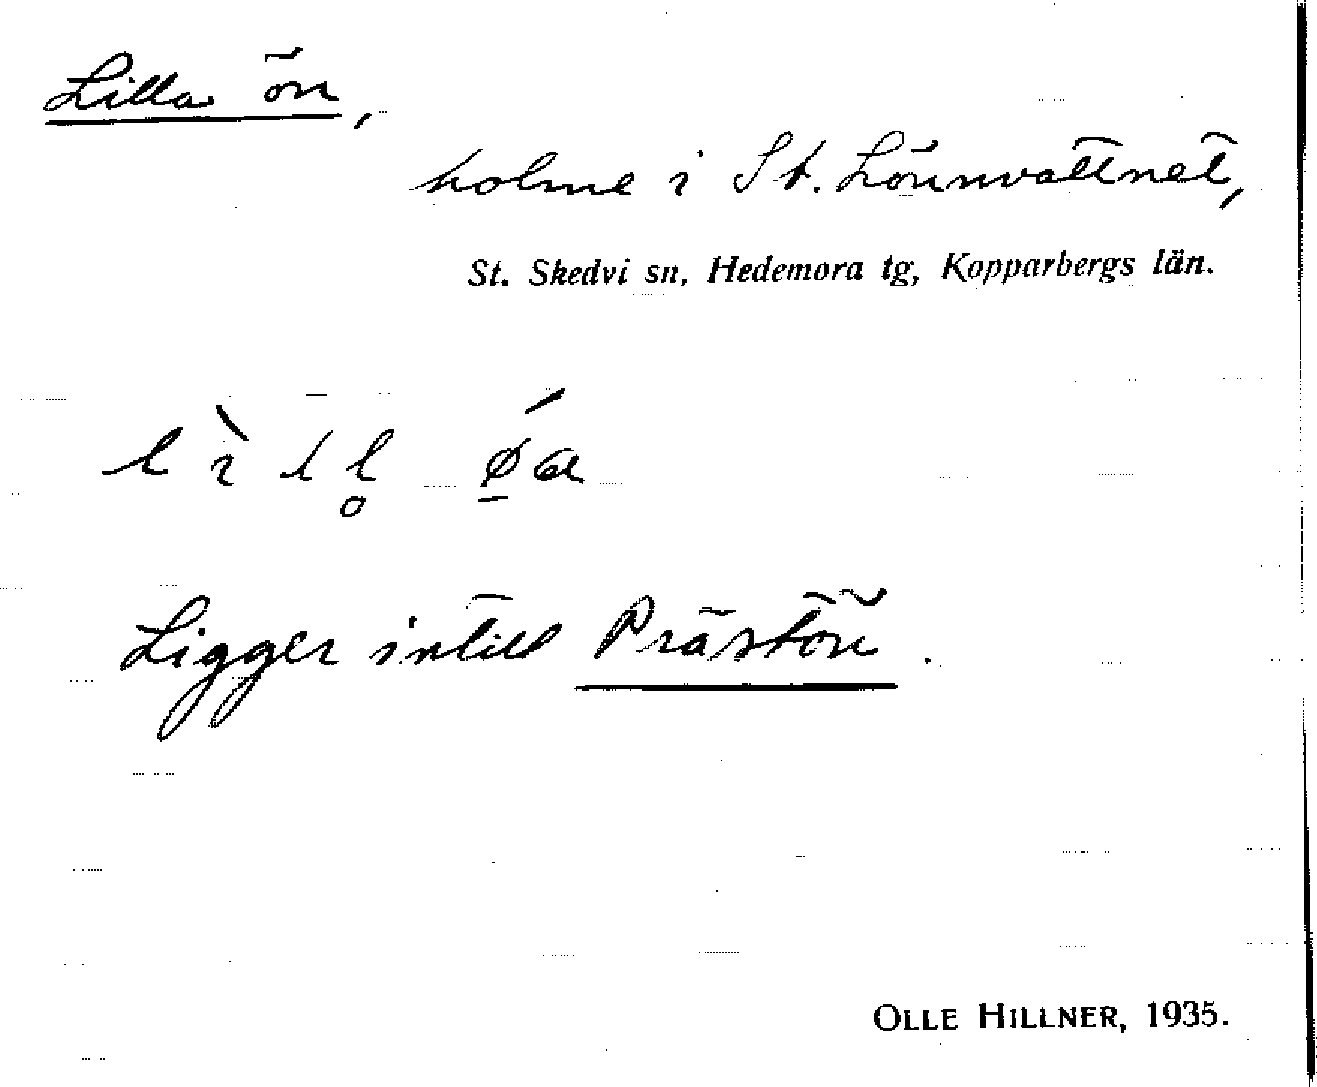 Lilla ön,
holme i St. Lönnvattnet,
St. Skedvi sn, Hedemora tg, Kopparbergs län.
lìll̥ ǿ̱a
Ligger intill Prästön.
OLLE HILLNER, 1935.